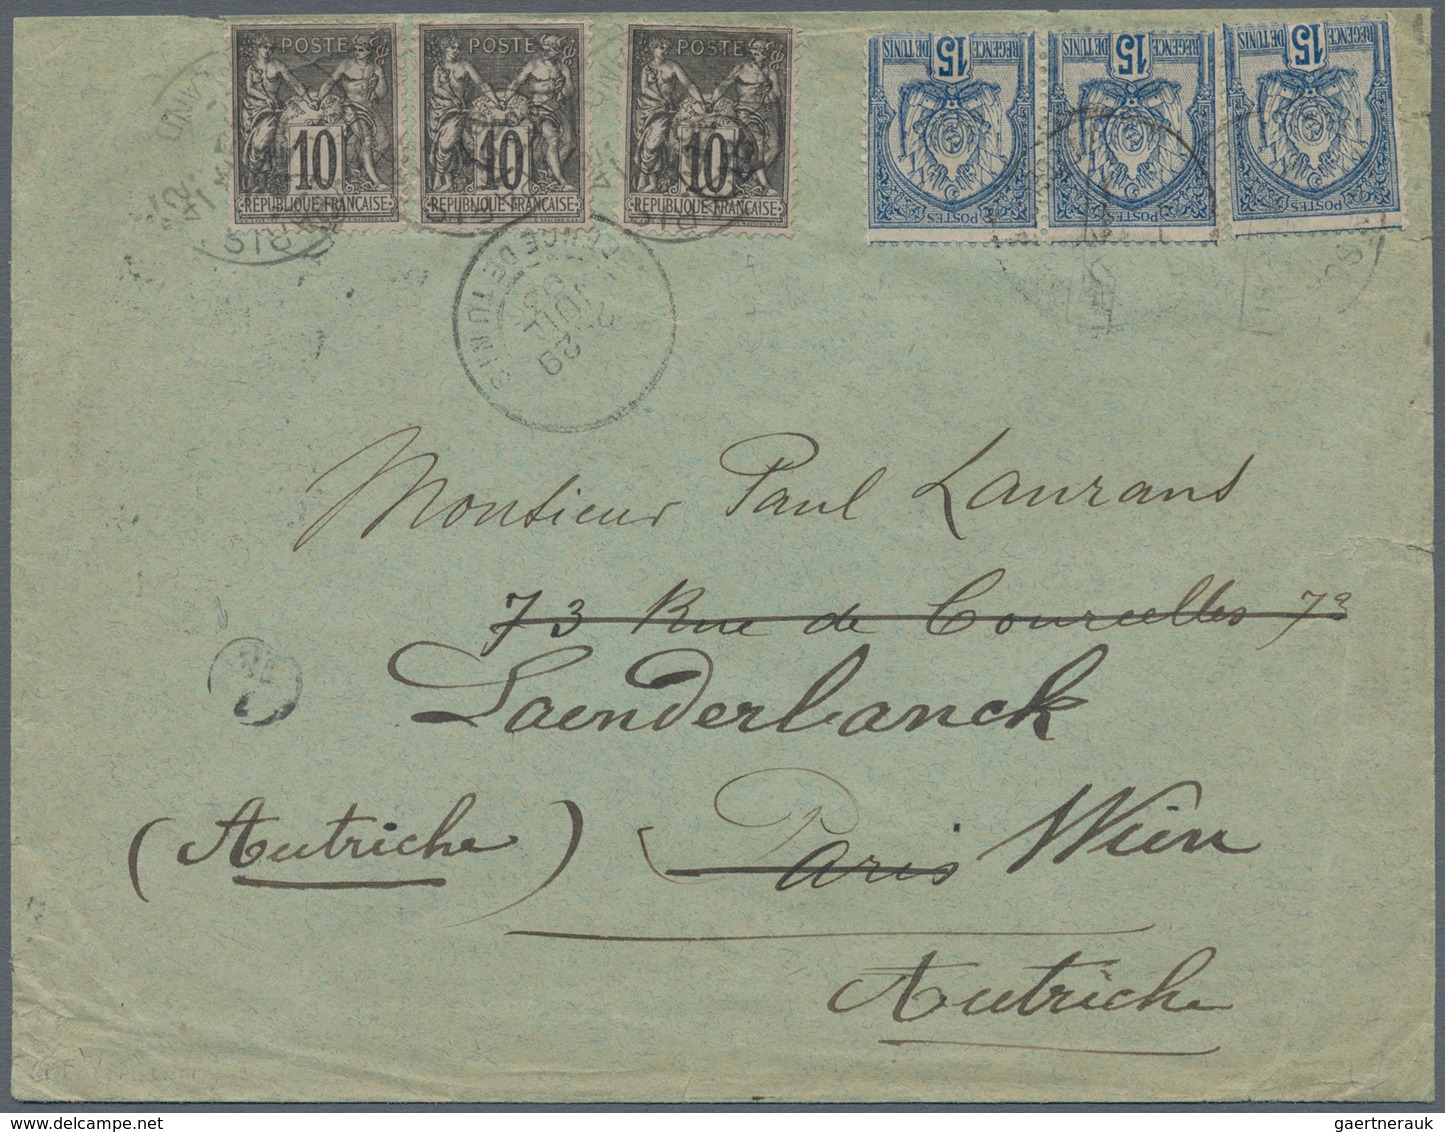 POSTE POSTE POSTE
10 10 10
REPUBLIQUE FRANÇAISE REPUBLIQUE FRANÇAISE REPUBLIQUE FRANÇAISE
REGENCE DE TUNIS 15 REGENCE DE TUNIS 15 REGENCE DE TUNIS 15
POSTES POSTES POSTES
29
JUIL
DE TUNIS
Monsieur Paul Laurans
73 Rue de Courcelles 73
Laenderbanck
(Autriche) Paris Wien
Autriche
gaertnerauk@delcampe.net